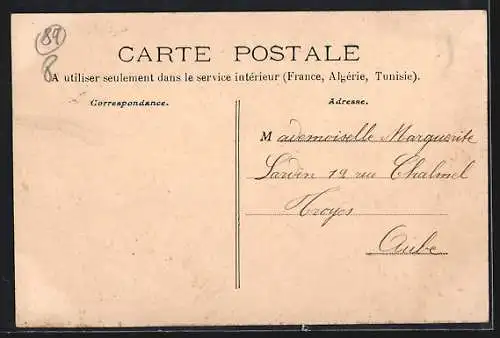 89
CARTE POSTALE
A utiliser seulement dans le service intérieur (France, Algérie, Tunisie).
Correspondance.
Adresse.
Mademoiselle Marguerite
Jardin 12 rue Chalmel
Troyes
Aube